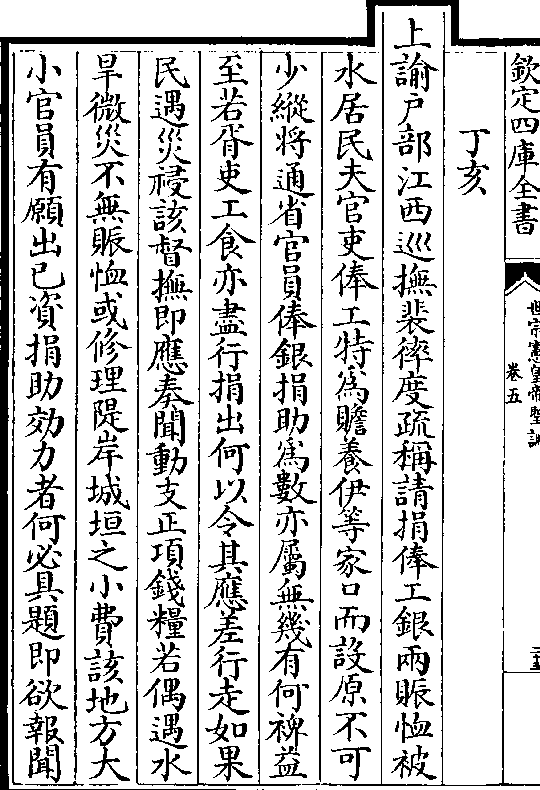 欽定四庫全書
世宗憲皇帝聖訓
卷五
丁亥
上諭戶部江西巡撫裴𢕬度疏稱請捐俸工銀兩賑恤被
水居民夫官吏俸工特為贍養伊等家口而設原不可
少縱將通省官員俸銀捐助為數亦屬無幾有何裨益
至若胥吏工食亦盡行捐出何以令其應差行走如果
民遇災祲該督撫即應奏聞動支正項錢糧若偶遇水
旱微災不無賑恤或修理隄岸城垣之小費該地方大
小官員有願出己資捐助効力者何必具題即欲報聞